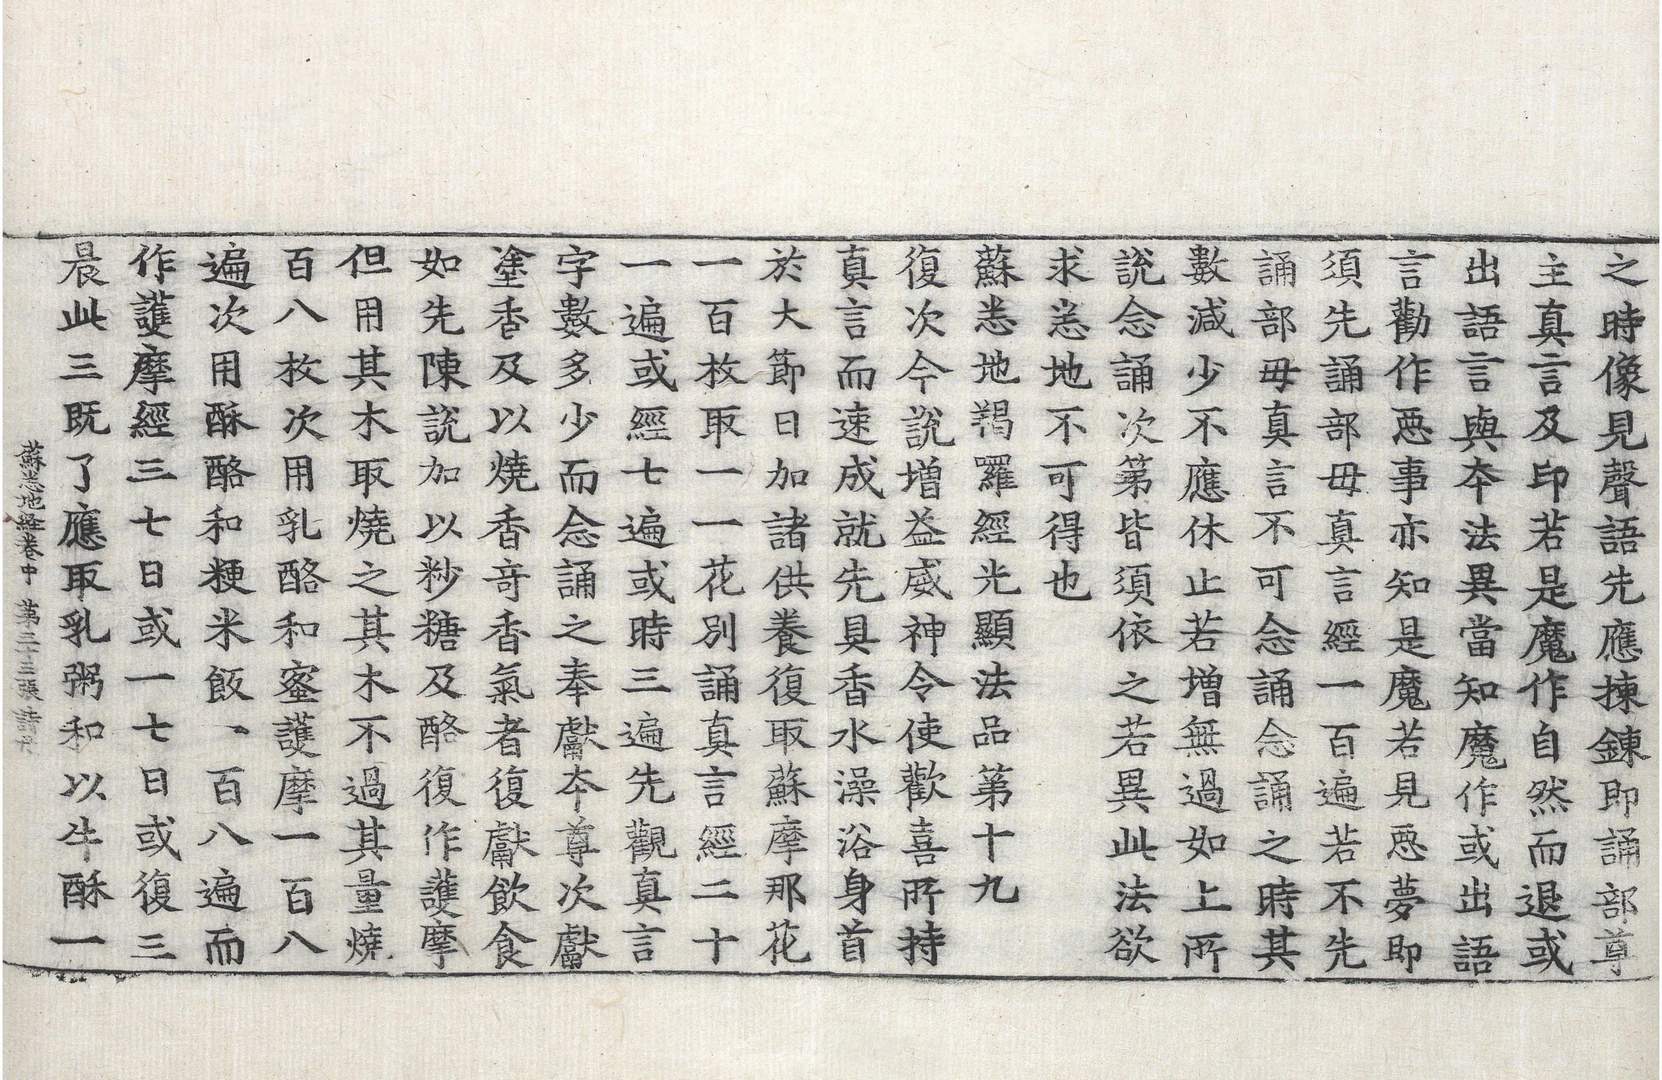 之時像見聲語先應揀鍊即誦部尊
主真言及印若是魔作自然而退或
出語言與夲法異當知魔作或出語
言勸作惡事亦知是魔若見惡夢即
須先誦部毋真言經一百遍若不先
誦部毋真言不可念誦念誦之時其
數減少不應休止若增無過如上所
說念誦次第皆須依之若異此法欲
求悉地不可得也
蘇悉地羯羅經光顯法品第十九
復次今說增益威神令使歡喜所持
真言而速成就先具香水澡浴身首
於大節日加諸供養復取蘇摩那花
一百枚取一一花別誦真言經二十
一遍或經七遍或時三遍先觀真言
字數多少而念誦之奉獻夲尊次獻
塗香及以燒香竒香香氣者復獻飲食
如先陳說加以粆糖及酪復作護摩
但用其木取燒之其木不過其量燒
百八枚次用乳酪和蜜護摩一百八
遍次用酥酪和粳米飯、百八遍而
作護摩經三七日或一七日或復三
晨此三既了應取乳粥和以牛酥一
蘇悉地經卷中 第三十三張 詩